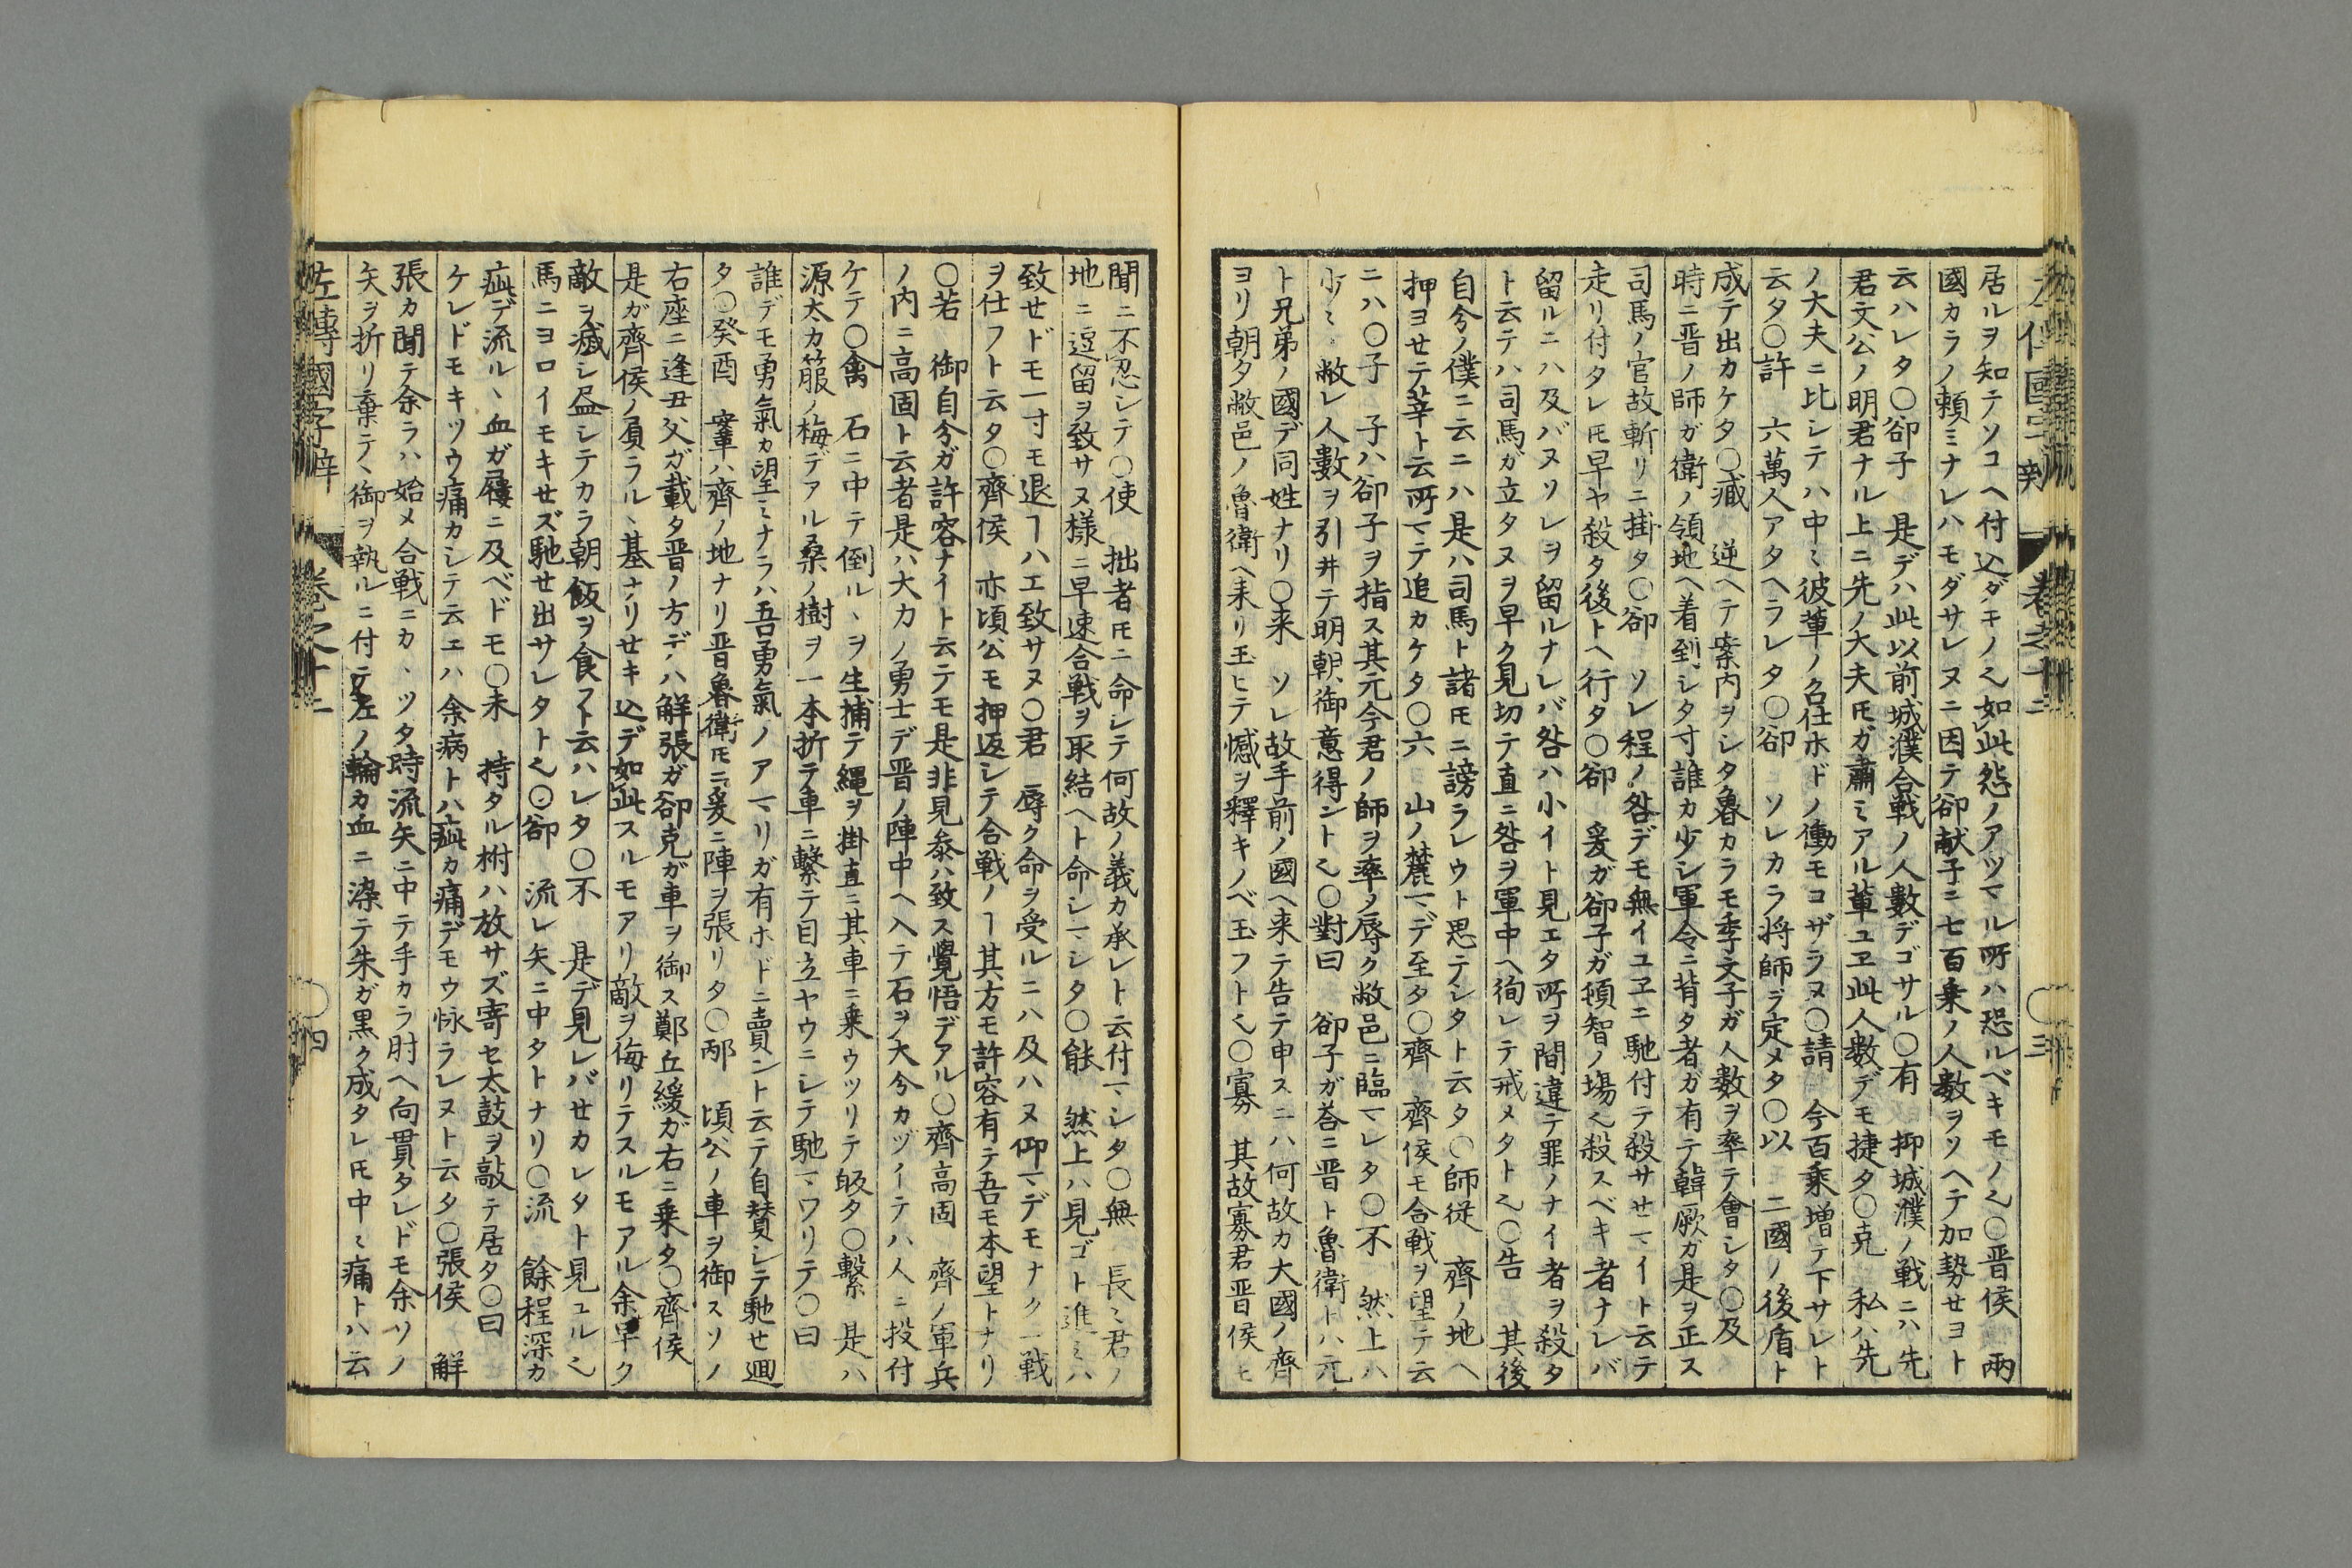 左傳國字辯 卷之十二 ○三
居ルヲ知テソコヘ付込ダモノ〆如此怨ノアツマル所ハ恐ルベキモノ〆○晋侯 兩
國カラノ頼ミナレハモダサレヌニ因テ郤献子ニ七百乗ノ人数ヲソヘテ加勢セヨト
云ハレタ○郤子 是デハ此以前城濮合戦ノ人數デゴサル○有 抑城濮ノ戦ニハ先
君文公ノ明君ナル上ニ先ノ大夫𪜈ガ肅ミアル軰ユヱ此人数デモ捷タ○克 私ハ先
ノ大夫ニ比シテハ中〻彼軰ノ召仕ホドノ働モコザラヌ○請 今百乗増テ下サレト
云タ○許 六萬人アタヘラレタ○郤 ソレカラ将師ヲ定メタ○以 二國ノ後盾ト
成テ出カケタ○臧 逆ヘテ案内ヲシタ魯カラモ季文子ガ人数ヲ率テ會シタ○及
時ニ晋ノ師ガ衛ノ領地ヘ着到シタ寸誰カ少シ軍令ニ背タ者ガ有テ韓厥ガ是ヲ正ス
司馬ノ官故斬リニ掛タ○郤 ソレ程ノ咎デモ無イユヱニ馳付テ殺サセマイト云テ
走リ付タレ𪜈早ヤ殺タ後トヘ行タ○郤 爰ガ郤子ガ頓智ノ塲〆殺スベキ者ナレバ
留ルニハ及バヌソレヲ留ルナレバ咎ハ小イト見エタ所ヲ間違テ罪ノナイ者ヲ殺タ
ト云テハ司馬カ立タヌヲ早ク見切テ直ニ咎ヲ軍中ヘ徇レテ戒メタト〆○告 其後
自今ノ僕ニ云ニハ是ハ司馬ト諸𪜈ニ謗ラレウト思テシタト云タ○師従 齊ノ地ヘ
押ヨセテ莘ト云所マテ追カケタ○六 山ノ麓マデ至タ○齊 齊侯モ合戦ヲ望テ云
ニハ○子 子ハ郤子ヲ指ス其元今君ノ師ヲ率メ辱ク敝邑ニ臨マレタ○不 然上ハ
少〻敝レ人數ヲ引井テ明朝御意得ント〆○對曰 郤子ガ荅ニ晋ト魯衛トハ元
ト兄弟ノ國デ同姓ナリ○来 ソレ故手前ノ國ヘ来テ告テ申スニハ何故カ大國ノ齊
ヨリ朝夕敝邑ノ魯衛ヘ来リ玉ヒテ憾ヲ釋キノベ玉フト〆○寡 其故寡君晋侯モ
聞ニ不忍シテ○使 拙者𪜈ニ命シテ何故ノ義カ承レト云付マシタ○無 長〻君ノ
地ニ逗留ヲ致サヌ様ニ早速合戦ヲ取結ヘト命シマシタ○能 然上ハ見ゴト進ミハ
致セドモ一寸モ退ヿハエ致サヌ○君 辱ク命ヲ受ルニハ及ハヌ仰マデモナク一戦
ヲ仕フト云タ○齊侯 亦頃公モ押返シテ合戦ノヿ其方モ許容有テ吾モ本望トナリ
○若 御自今ガ許容ナイト云テモ是非見参ハ致ス覺悟デアル○齊高固 齊ノ軍兵
ノ内ニ高固ト云者是ハ大力ノ勇士デ晋ノ陣中ヘ入テ石ヲ大今カヅイテハ人ニ投付
ケテ○禽 石ニ中テ倒ルヽヲ生捕テ縄ヲ掛直ニ其車ニ乗ウツリテ皈タ○繋 是ハ
源太カ箙ノ梅デアル桑ノ樹ヲ一本折テ車ニ繋テ目立ヤウニシテ馳マワリテ○曰
誰デモ勇氣カ望ミナラハ吾勇氣ノアマリガ有ホドニ賣ント云テ自賛シテ馳セ廽
タ○癸酉 鞌ハ齊ノ地ナリ晋魯衛𪜈ニ爰ニ陣ヲ張リタ○邴 頃公ノ車ヲ御スソノ
右座ニ逢丑父ガ載タ晋ノ方デハ解張ガ郤克ガ車ヲ御ス鄭丘緩ガ右ニ乗タ○齊侯
是ガ齊侯ノ負ラルヽ基ナリセキ込デ如此スルモアリ敵ヲ侮リテスルモアル余早ク
敵ヲ滅シ盡シテカラ朝飯ヲ食フト云ハレタ○不 是デ見レバセカレタト見ユル〆
馬ニヨロイモキセズ馳セ出サレタト〆○郤 流レ矢ニ中タトナリ○流 餘程深カ
疵デ流ルヽ血ガ屨ニ及ベドモ○未 持タル枹ハ放サズ寄セ太鼓ヲ敲テ居タ○曰
ケレドモキツウ痛カシテ云ヱハ余病トハ疵カ痛デモウ怺ラレヌト云タ○張侯 解
張カ聞テ余ラハ始メ合戦ニカヽツタ時流矢ニ中テ手カラ肘ヘ向貫タレドモ余ソノ
矢ヲ折リ棄テヽ御ヲ執ルニ付テ左ノ輪カ血ニ染テ朱ガ黒ク成タレ𪜈中〻痛トハ云
左傳國字辯 卷之十二 ○四